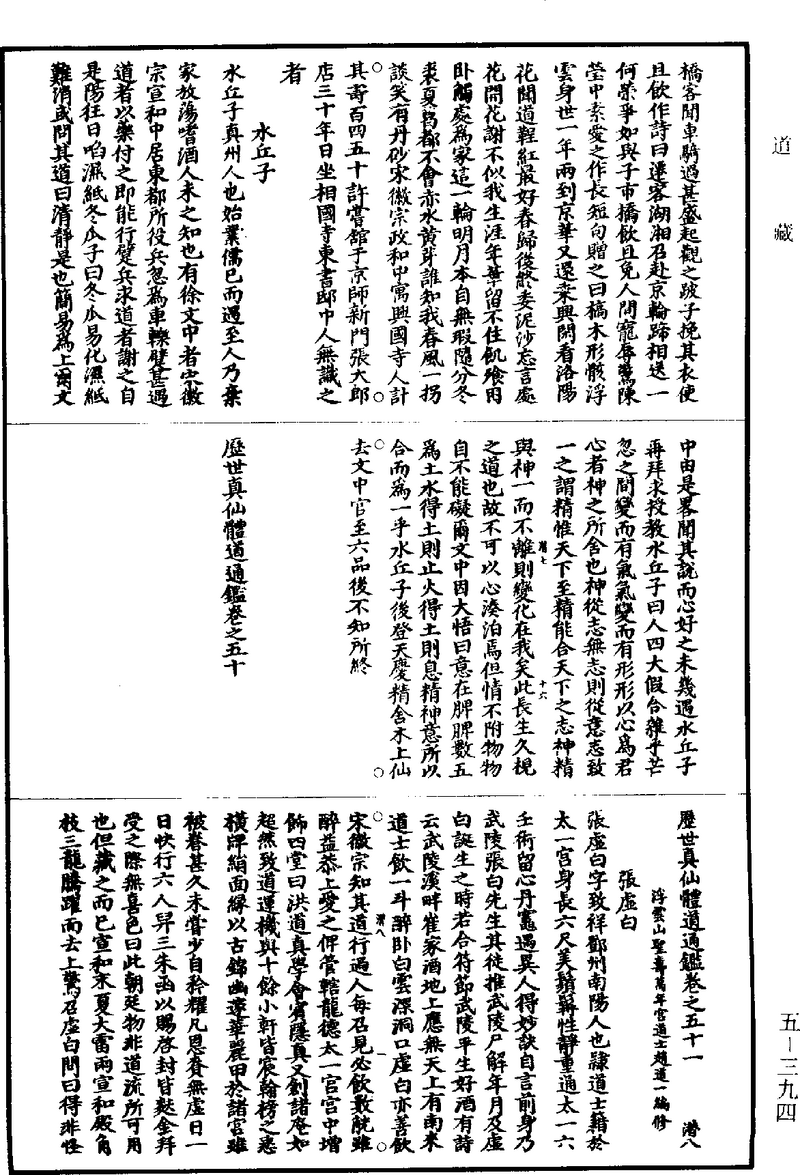 道藏
橋客聞車騎過甚盛起觀之跛子挽其衣使
且飲作詩曰遷客湖湘召赴京輪蹄相送一
何榮爭如與子市橋飲且免人間寵辱驚陳
瑩中素愛之作長短句贈之曰槁木形骸浮
雲身世一年兩到京華又還乘興閑看洛陽
花聞道鞓紅最好春歸後終委泥沙忘言處
花開花謝不似我生涯年華留不住飢飡困
卧觸處為家這一輪明月本自無瑕隨分冬
裘夏葛都不會赤水黄芽誰知我春風一拐
談笑有丹砂宋徽宗政和中寓興國寺人計
其壽百四五十許嘗舘于京師新門張大郎
店三十年日坐相國寺東書邸中人無識之
者
水丘子
水丘子真州人也始業儒已而遇至人乃棄
家放蕩嗜酒人未之知也有徐文中者宋徽
宗宣和中居東都所役兵忽為車轢臂甚遇
道者以藥付之即能行蹩兵求道者謝之自
是陽狂日啗濕紙冬瓜子曰冬瓜易化濕紙
難消或問其道曰清靜是也簡易為上爾文
中由是畧聞其說而心好之未幾遇水丘子
再拜求授教水丘子曰人四大假合雜乎芒
忽之間變而有氣氣變而有形形以心為君
心者神之所舍也神從志無志則從意志致
一之謂精惟天下至精能合天下之志神精
與神一而不離則變化在我矣此長生久視
之道也故不可以心湊泊焉但情不附物物
自不能礙爾文中因大悟曰意在脾脾數五
為土水得土則止火得土則息精神意所以
合而為一乎水丘子後登天慶精舍木上仙
去文中官至六品後不知所終
潛七
十六
歷世真仙體道通鑑卷之五十
歷世真仙體道通鑑卷之五十一 潛八
浮雲山聖壽萬年宮道士趙道一編修
張虛白
張虛白字致祥鄧州南陽人也隸道士籍於
太一宮身長六尺美鬚髯性靜重通太一六
壬術留心丹竈遇異人得妙訣自言前身乃
武陵張白先生其徒推武陵尸解年月及虛
白誕生之時若合符節武陵平生好酒有詩
云武陵溪畔崔家酒地上應無天上有南来
道士飲一斗醉卧白雲深洞口虛白亦善飲
宋徽宗知其道行過人每召見必飲數觥雖
醉益恭上愛之俾管轄龍德太一宮宮中增
飾四堂曰洪道真學會賓隱真又創諸庵如
超然致道運機與十餘小軒皆宸翰榜之悉
橫牌綃面緣以古錦幽邃華麗甲於諸宮雖
被眷甚久未嘗少自矜耀凡恩賚無虛日一
日快行六人舁三朱函以賜啓封皆麩金拜
受之際無喜色曰此朝廷物非道流所可用
也但藏之而已宣和末夏大雷雨宣和殿角
枝三龍騰躍而去上驚召虛白問曰得非怪
潛八
一
五—三九四